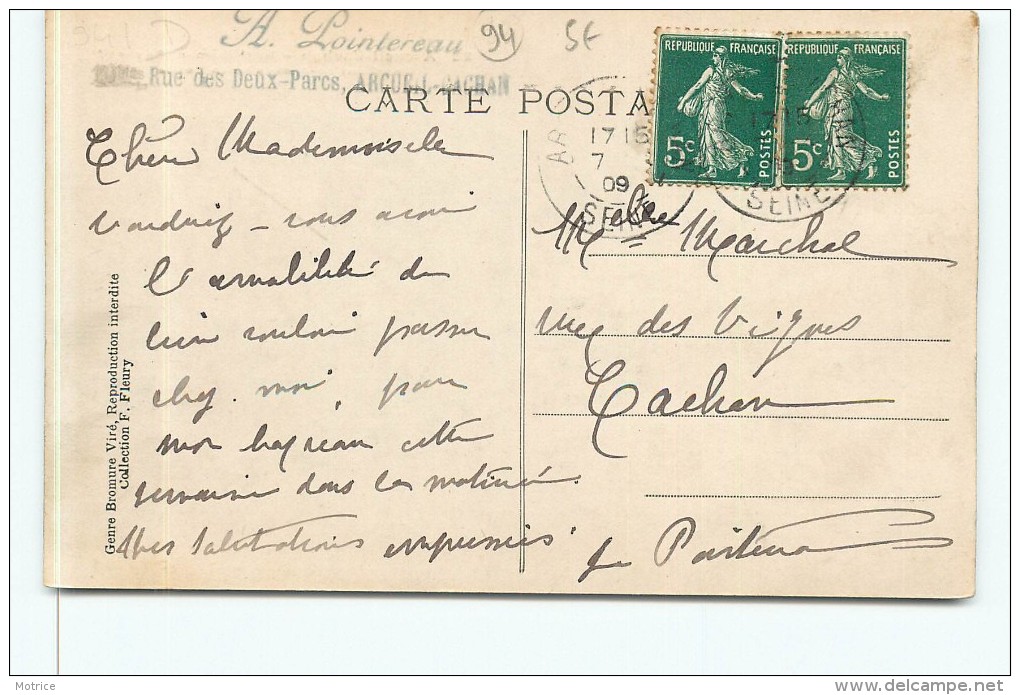 A. Pointereau
94
Rue des Deux-Parcs, ARCUEIL-CACHAN
CARTE POSTA
REPUBLIQUE FRANÇAISE
5c
POSTES
REPUBLIQUE FRANÇAISE
5c
POSTES
17 15
7
09
SEINE
SEINE
Chère Mademoiselle
voudriez-vous avoir
l'amabilité de
bien vouloir passer
chez moi, pour
mon chapeau cette
semaine dans la matinée.
Mes Salutations empressées
Melle Marchal
rue des Vignes
Cachan
Genre Bromure Viré, Reproduction interdite
Collection F. Fleury
Motrice
delcampe.net